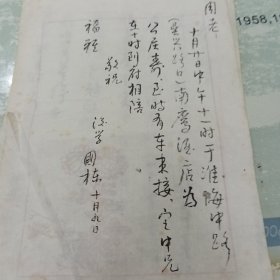 周老：
十月廿日中午十一时于淮海中路
（吴兴路口）南鹰酒店为
公庄寿，至时有车来接，定中兄
在十时到府相陪
敬祝
福祉
国栋 十月九日
1958,1